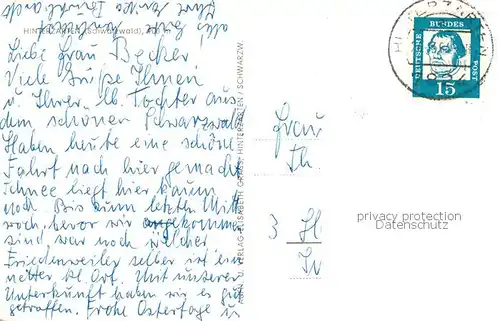 HINTERZARTEN (Schwarzwald), 
Liebe Frau Becker
Viele Grüße Ihnen
u. Ihrer lb. Tochter aus
dem schönen Schwarzwald
Haben heute eine schöne
Fahrt nach hier gemacht
Schnee liegt hier kaum
noch. Bis zum letzten Mitt
woch, bevor wir angekommen
sind, war noch welcher
Friedenweiler selber ist ein
netter kl. Ort. Mit unserer
Unterkunft haben wir es gut
getroffen. Frohe Ostertage u
alles Gute wünscht
Ihre
DEUTSCHE
BUNDES
POST
15
HINTERZARTEN
VERLAG ELISABETH HINTERZARTEN / SCHWARZW.
Frau
Th
3 H
privacy protection
Datenschutz